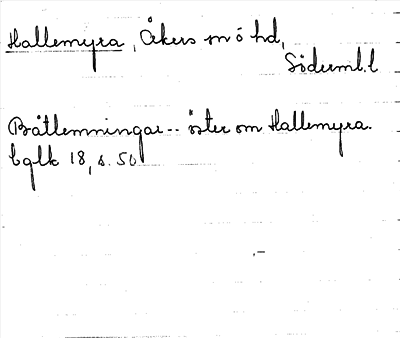 Hallemyra, Åkers sn ö hd,
Söderml.l
Båtlemningar -- öster om Hallemyra.
bglk 18, s. 50